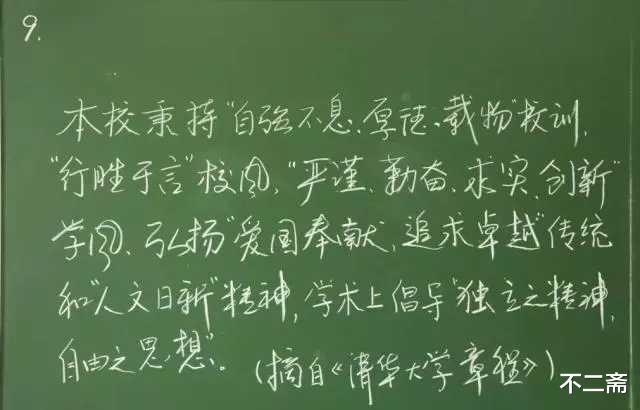 9.
本校秉持"自强不息、厚德、载物"校训,
"行胜于言"校风,"严谨、勤奋、求实、创新"
学风、弘扬"爱国奉献,追求卓越"传统
和"人文日新"精神,学术上倡导"独立之精神,
自由之思想"。(摘自《清华大学章程》)
不二斋